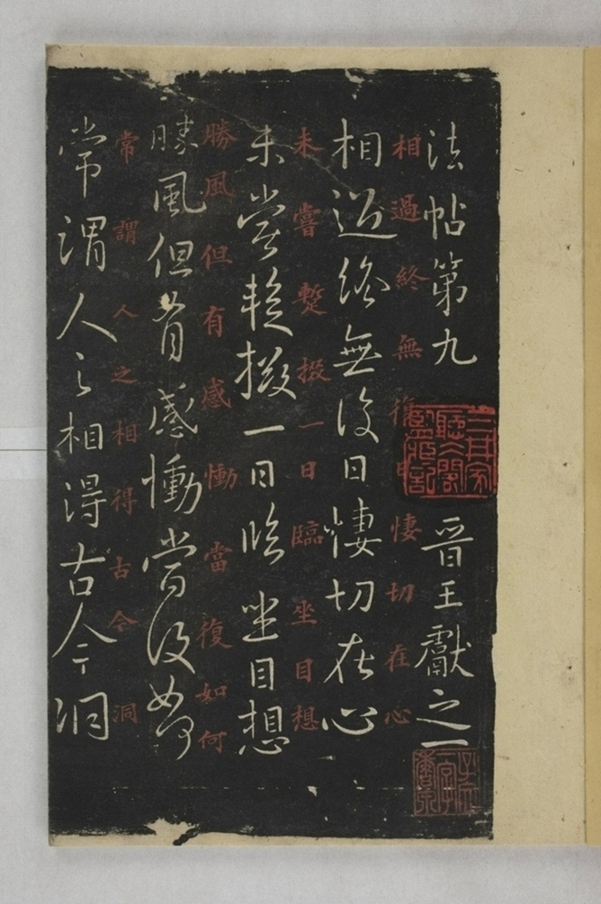 法帖第九 晉王獻之一
相過終無復日悽切在心
相過終無復日悽切在心
未嘗蹔撥一日臨坐目想
未嘗蹔撥一日臨坐目想
勝風但有感慟當復如何
勝風但有感慟當復如何
常謂人之相得古今洞
常謂人之相得古今洞